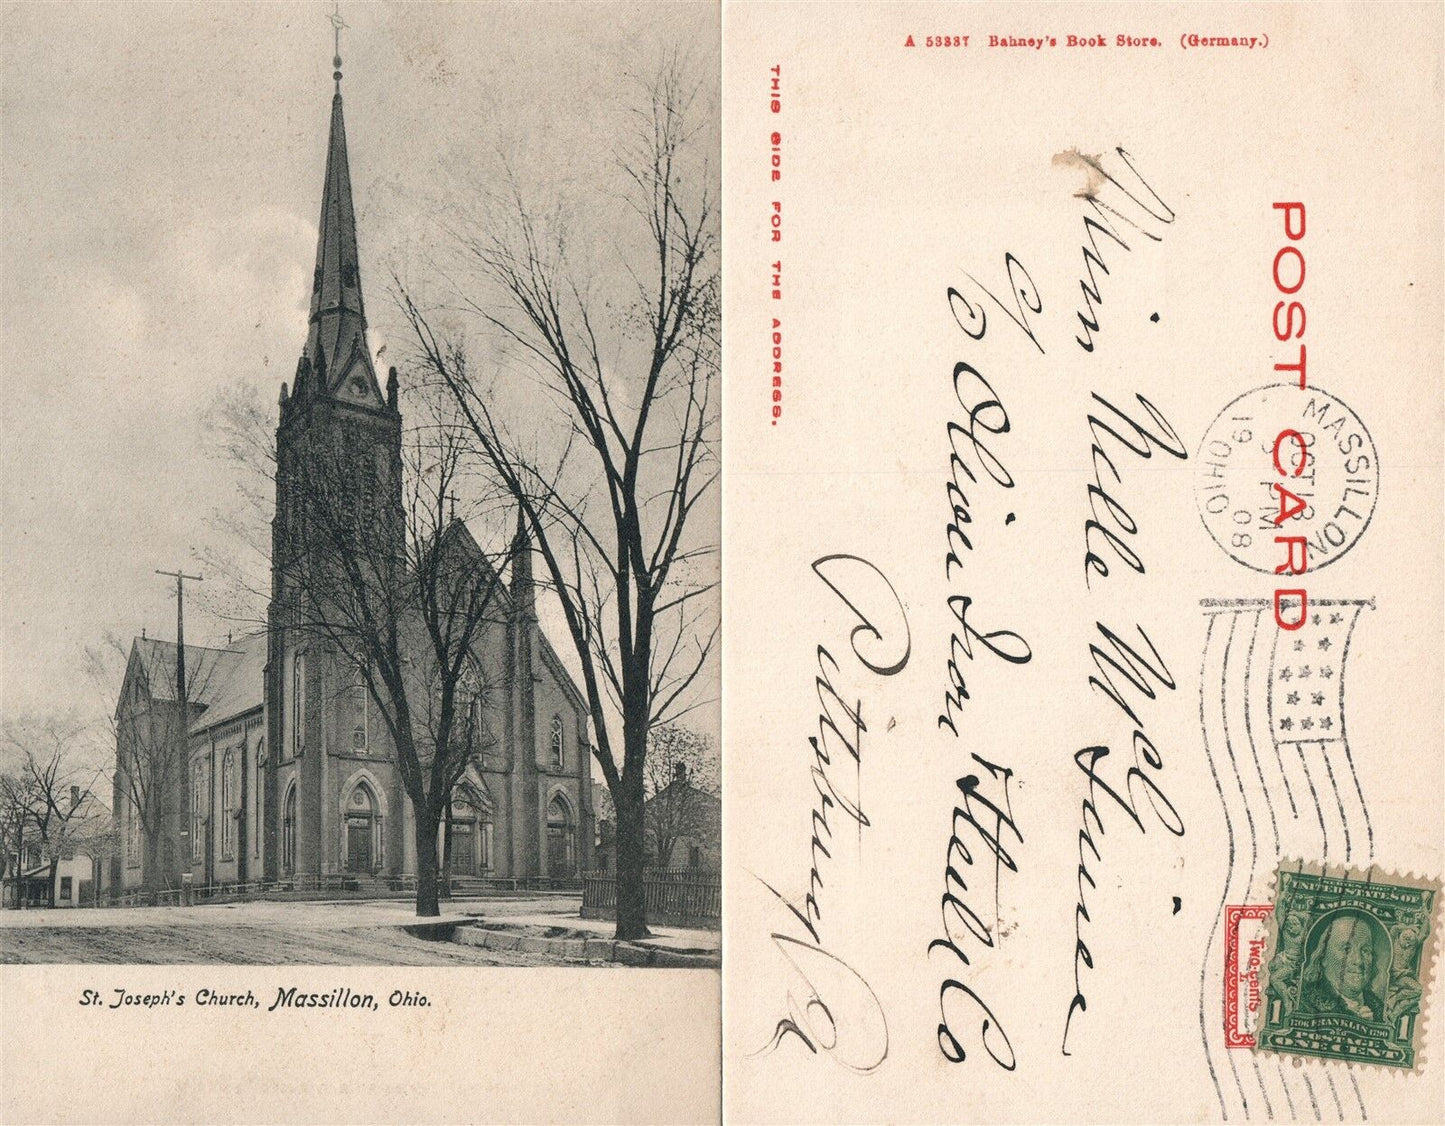 St. Joseph's Church, Massillon, Ohio.
A 53337 Bahney's Book Store. (Germany.)
THIS SIDE FOR THE ADDRESS.
POST CARD
MASSILLON
OCT 13
PM
19 08
OHIO
Two cents
SERIES 1902
UNITED STATES OF
AMERICA
1706 FRANKLIN 1790
1 1
POSTAGE
ONE CENT
Miss Nelle
% Oliver Iron & Steel Co
Pittsburg Pa